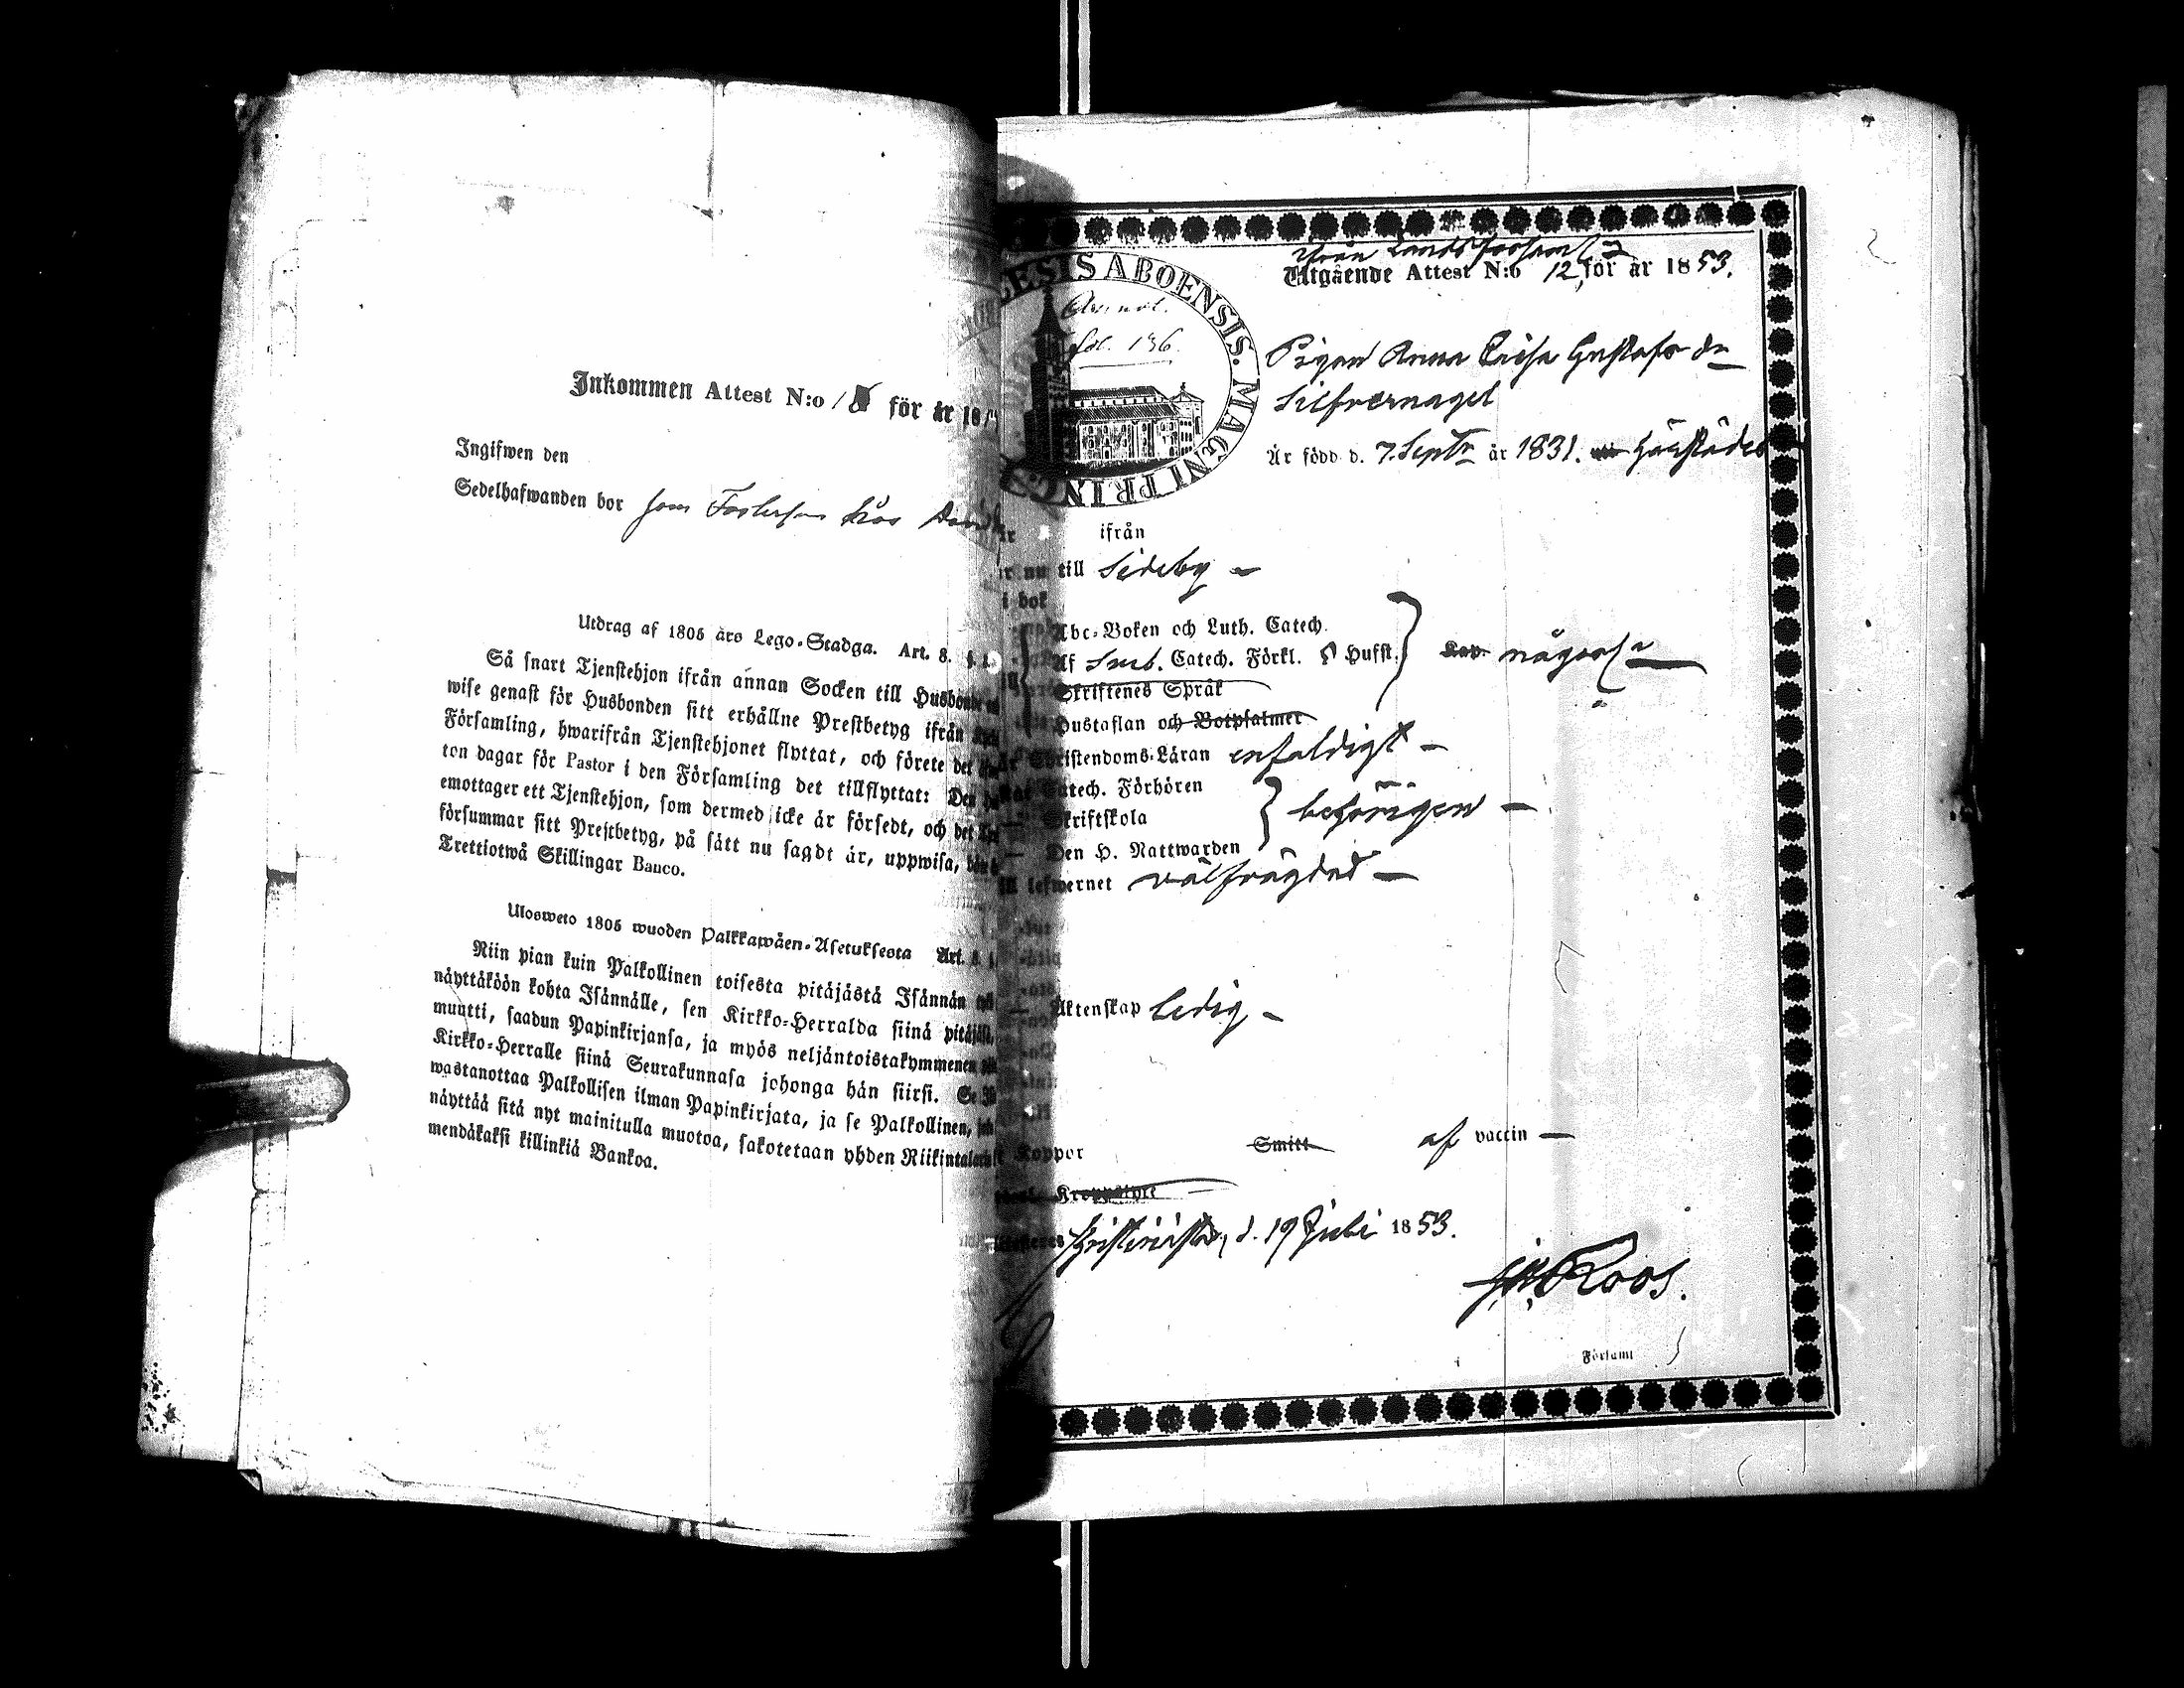 Inkommen Attest N:o för år 18
Ingifwen den
Sedelhafwanden bor som hos
Utdrag af 1805 års Lego-Stadga. Art. 8. §.
Så snart Tjenstehjon ifrån annan Socken till Husbonde
wise genast för Husbonden sitt erhållne Prestbetyg ifrån
Församling, hwarifrån Tjenstehjonet flyttat, och förete det
ton dagar för Pastor i den Församling det tillflyttat: Den
emottager ett Tjenstehjon, som dermed icke är försedt, och det
försummar sitt Prestbetyg, på sätt nu sagdt är, uppwisa,
Trettiotwå Skillingar Banco.
Ulosweto 1805 wuoden Palkkawäen-Asetuksesta Art. 8.
Niin pian kuin Palkollinen toisesta pitäjästä Isännän
näyttäköön kohta Isännälle, sen Kirkko-Herralda siinä
muutti, saadun Papinkirjansa, ja myös neljäntoistakymmenen
Kirkko-Herralle siinä Seurakunnasa johonga hän siirsi. Se
wastanottaa Palkollisen ilman Papinkirjata, ja se Palkollinen,
näyttää sitä nyt mainitulla muotoa, sakotetaan yhden
mendäkaksi killinkiä Bankoa.
ESIS ABOENSIS. MAGNI PRINC
fol. 136
från Landsförsaml
Utgående Attest N:o 12, för år 1853.
Pigan Anna Caisa Gustafsdr
Silfvernagel
Är född d. 7. Septr år 1831. härstädes
ifrån
nu till Sideby
i bok
Abc-Boken och Luth. Catech.
Af Sweb. Catech. Förkl. Husst.
någorl
Skriftenes Språk
Hustaflan och Botpsalmer
Christendoms-Läran enfaldigt
Catech. Förhören
Skriftskola
behörigen
Den H. Nattwarden
lefwernet välfrägdad
Äktenskap ledig
Koppor Smitt af vaccin
Kroppslyte
Christinestad, d. 19 Juli 1853.
Roos.
Församl